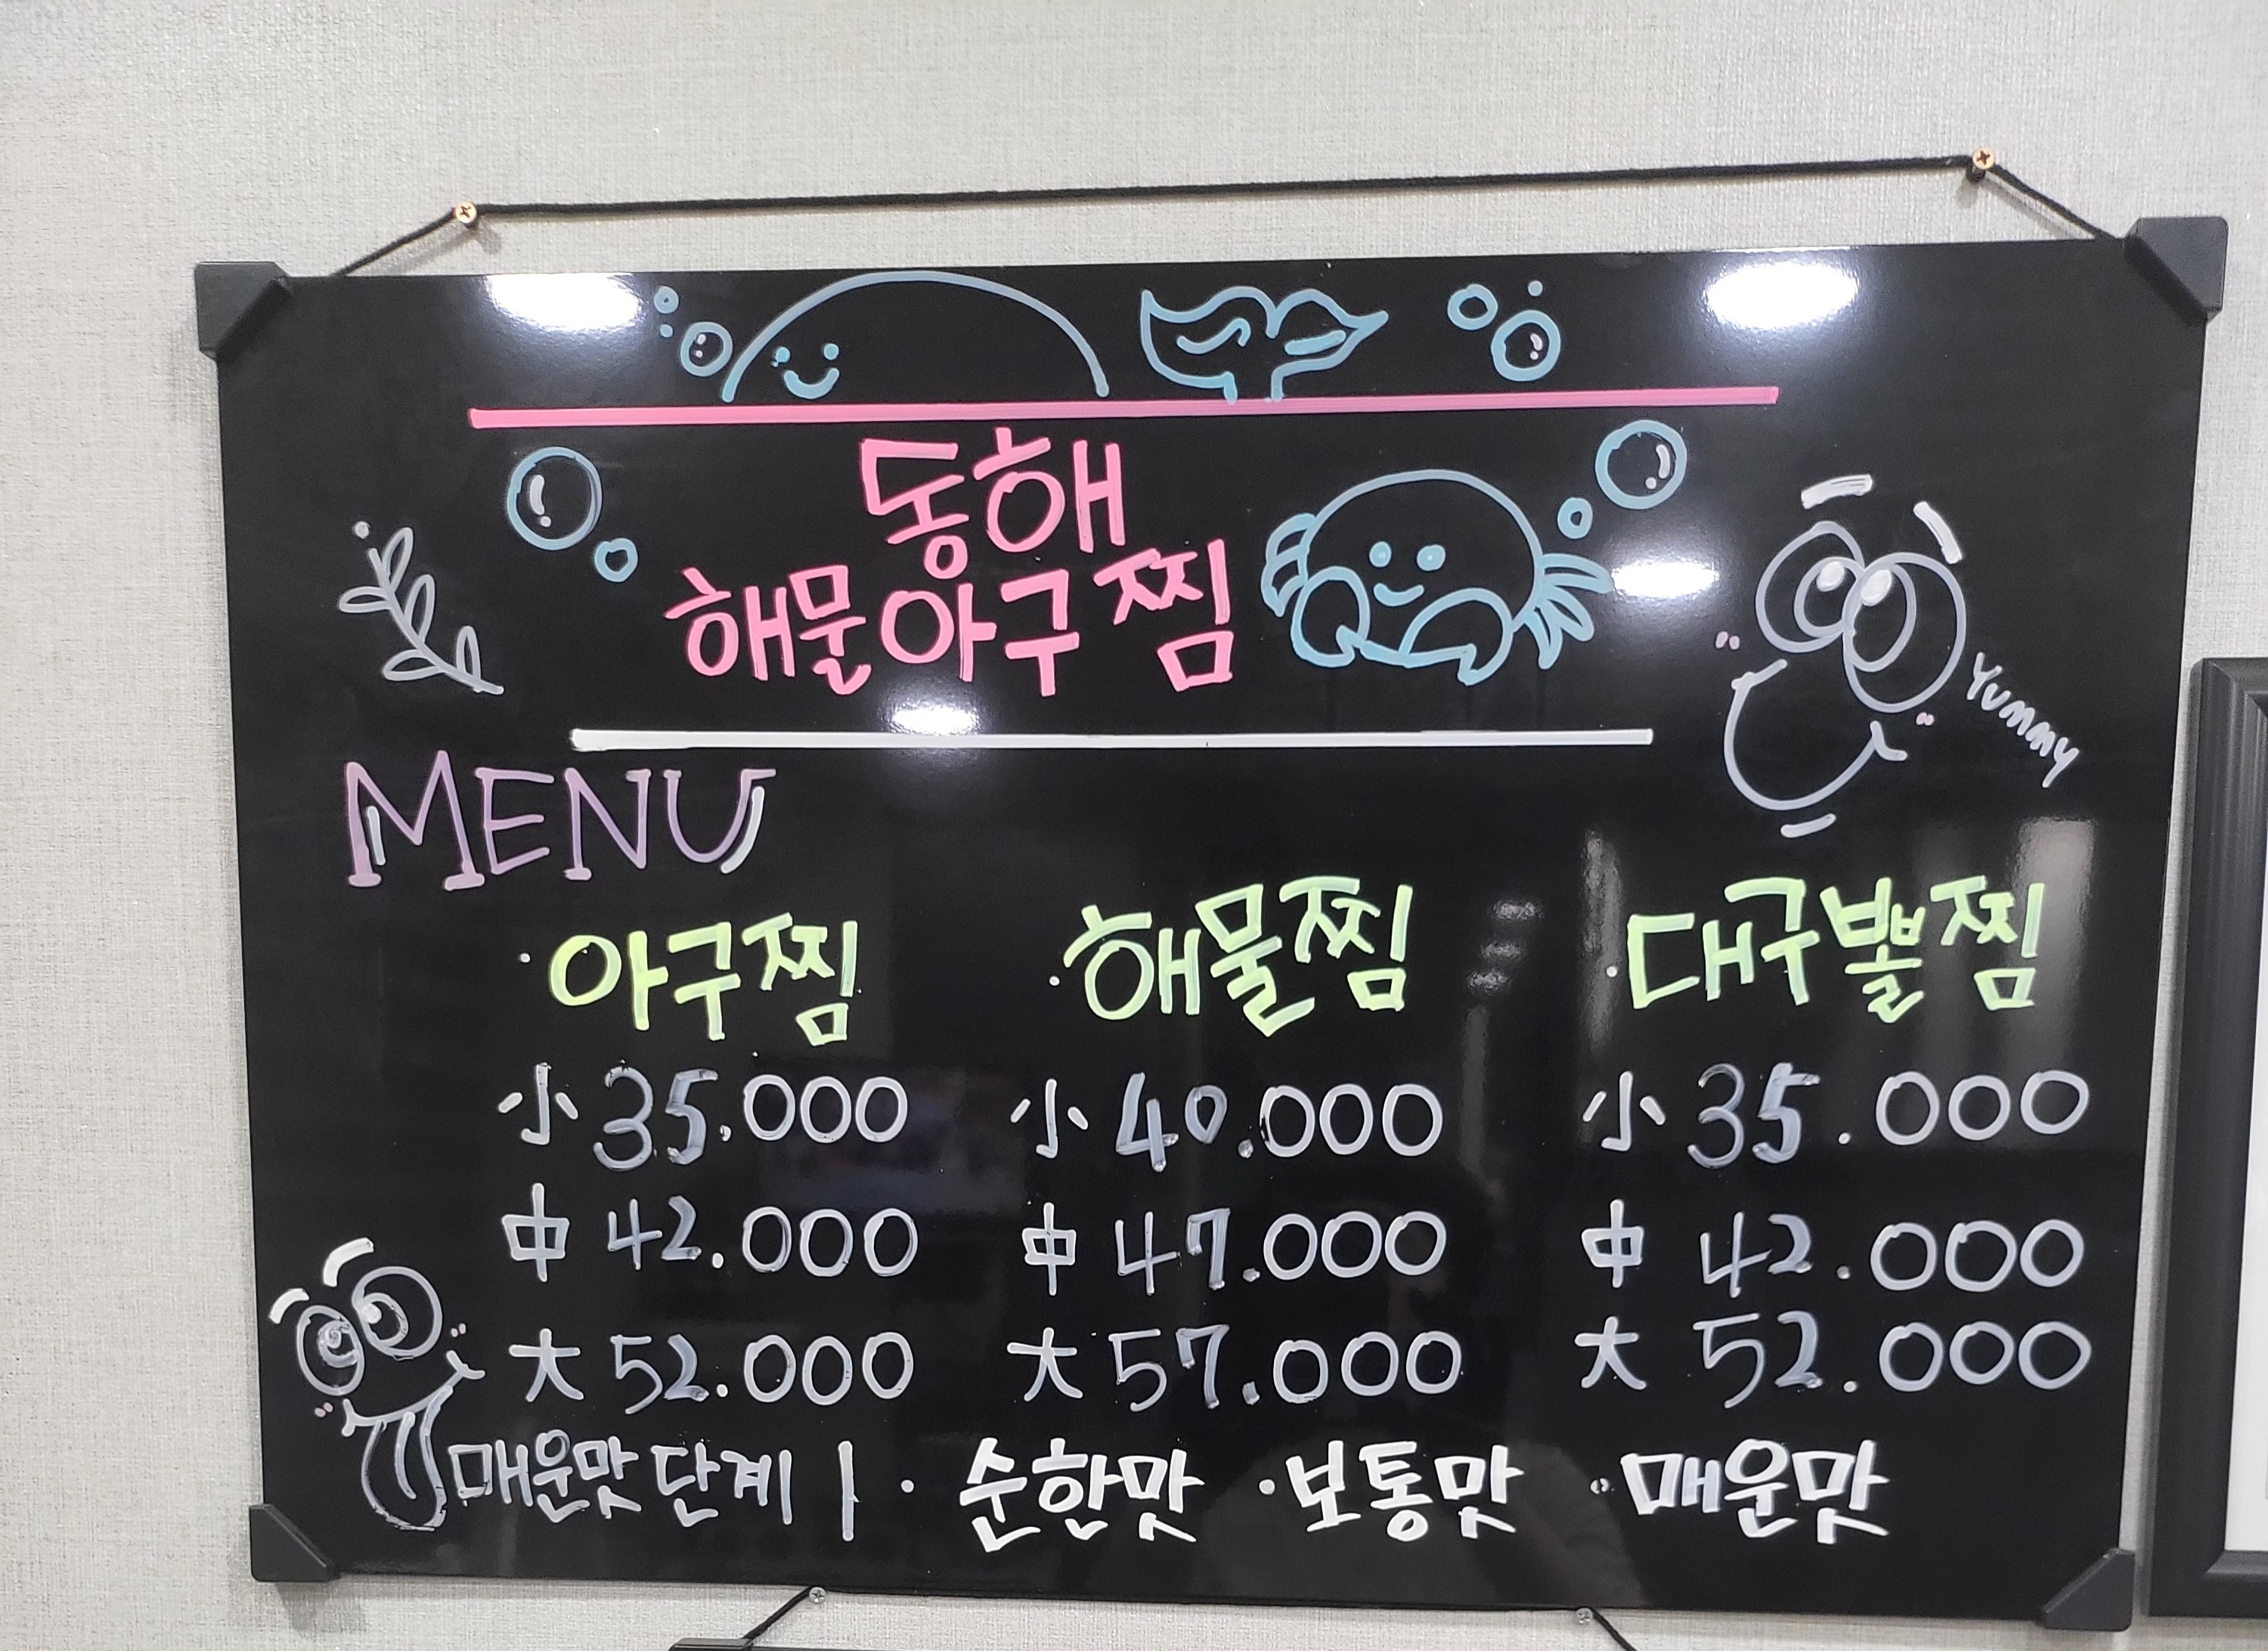 동해
해물아구찜
Yummy
MENU
· 아구찜 · 해물찜 · 대구뽈찜
小 35.000 小 40.000 小 35.000
中 42.000 中 47.000 中 42.000
大 52.000 大 57.000 大 52.000
매운맛 단계 | · 순한맛 · 보통맛 · 매운맛